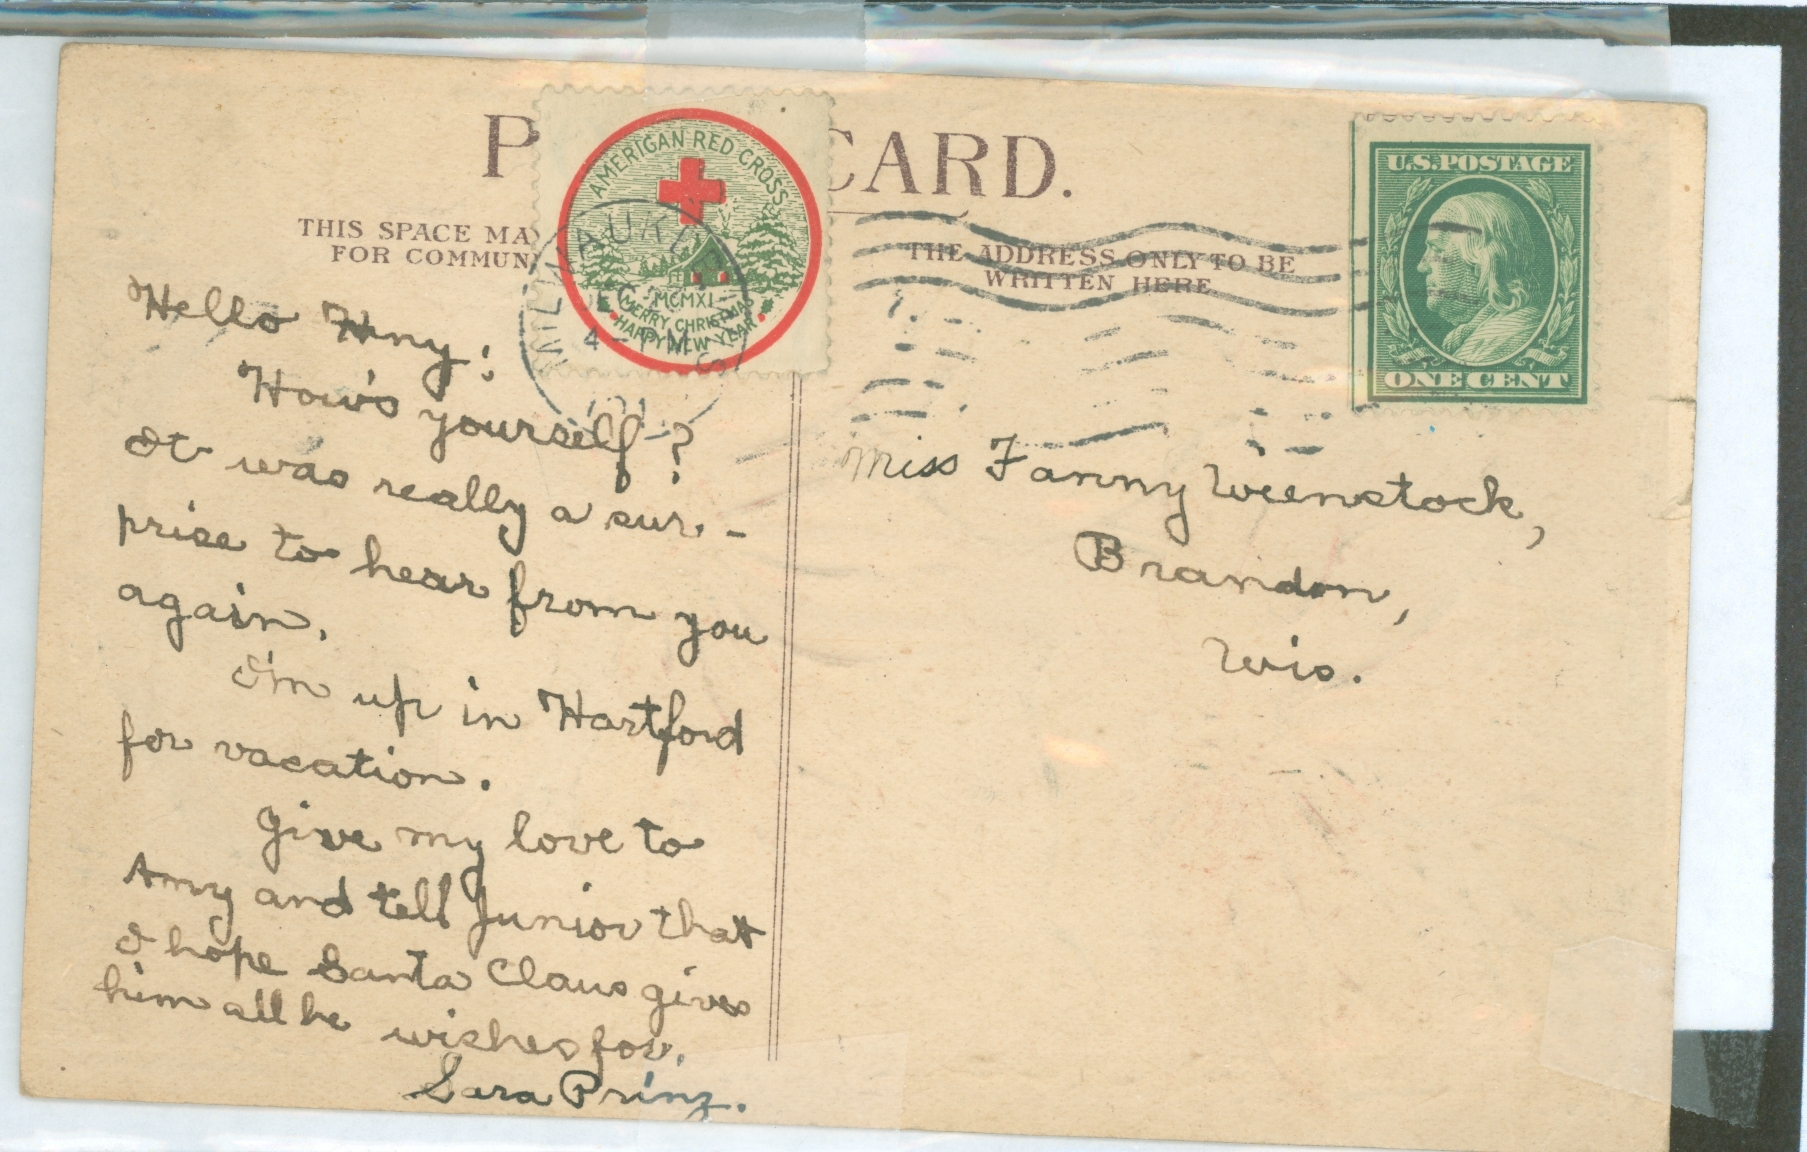 P CARD.
AMERICAN RED CROSS
MCMXI
MERRY CHRISTMAS
HAPPY NEW YEAR
MILWAUKEE
WIS
4-
U.S. POSTAGE
ONE CENT
THIS SPACE MAY
FOR COMMUN
THE ADDRESS ONLY TO BE
WRITTEN HERE
Hello
How's yourself?
It was really a sur-
prise to hear from you
again.
I'm up in Hartford
for vacation.
Give my love to
Amy and tell Junior that
I hope Santa Claus gives
him all he wishes for.
Sara Prinz.
Miss Fanny Weenstock,
Brandon,
Wis.